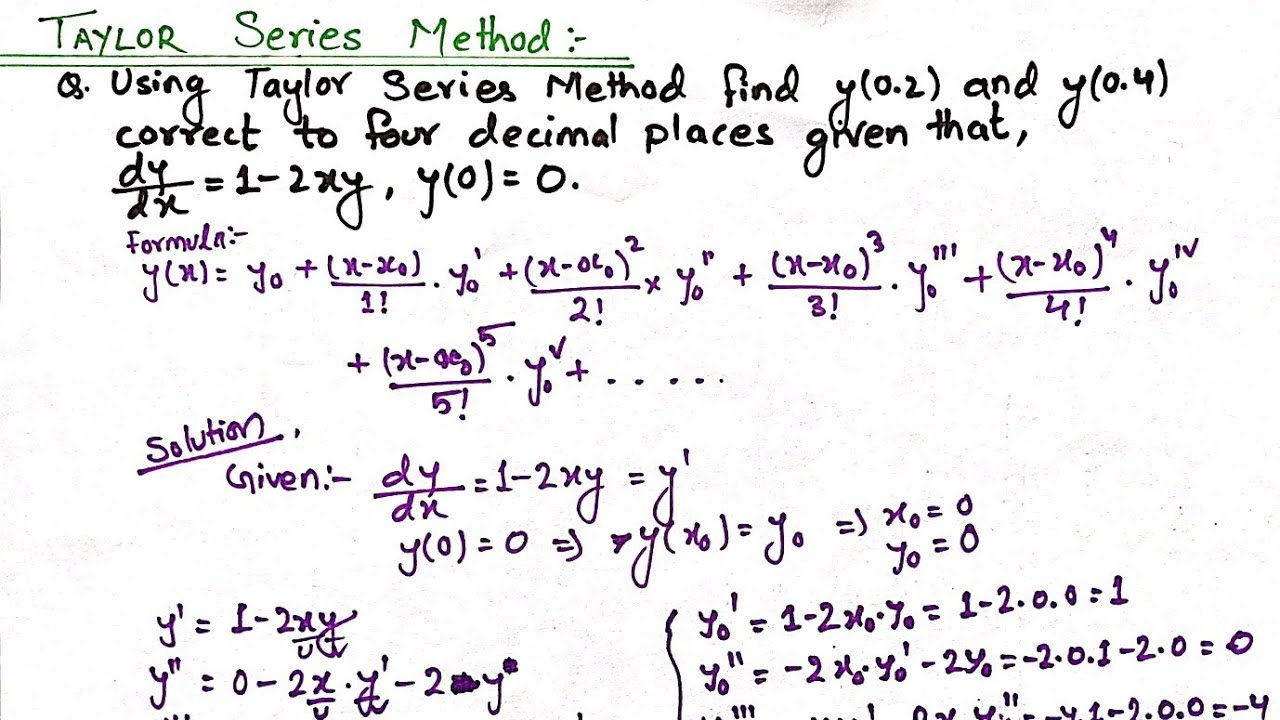 TAYLOR Series Method:-
Q. Using Taylor Series Method find y(0.2) and y(0.4)
correct to four decimal places given that,
dy/dx = 1-2xy, y(0)= 0.
Formula:-
y(x)= y₀ + (x-x₀)/1! . y₀' + (x-x₀)²/2! × y₀'' + (x-x₀)³/3! . y₀''' + (x-x₀)⁴/4! . y₀ⁱᵛ
+ (x-x₀)⁵/5! . y₀ᵛ + ......
Solution,
Given:- dy/dx = 1-2xy = y'
y(0) = 0 => y(x₀) = y₀ => x₀ = 0
y₀ = 0
y' = 1-2xy
y'' = 0-2x.y'-2y
y₀' = 1-2x₀.y₀ = 1-2.0.0 = 1
y₀'' = -2x₀.y₀'-2y₀ = -2.0.1-2.0 = 0
= -4.1-2.0.0 = -4